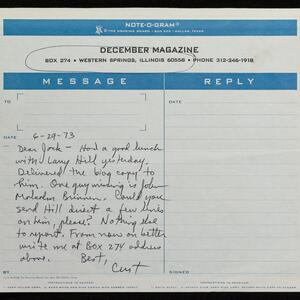 NOTE-O-GRAM®
© THE DRAWING BOARD • BOX 505 • DALLAS, TEXAS
DECEMBER MAGAZINE
BOX 274 • WESTERN SPRINGS, ILLINOIS 60558 • PHONE 312-246-1918
MESSAGE REPLY
TO
DATE 6-29-73 DATE
Dear Jack – Had a good lunch
with Larry Hill yesterday.
Delivered the biog copy to
him. One guy missing is John
Malcolm Brinnin. Could you
send Hill direct a few lines
on him, please? Nothing else
to report. From now on better
write me at Box 274 address
above. Best,
Curt